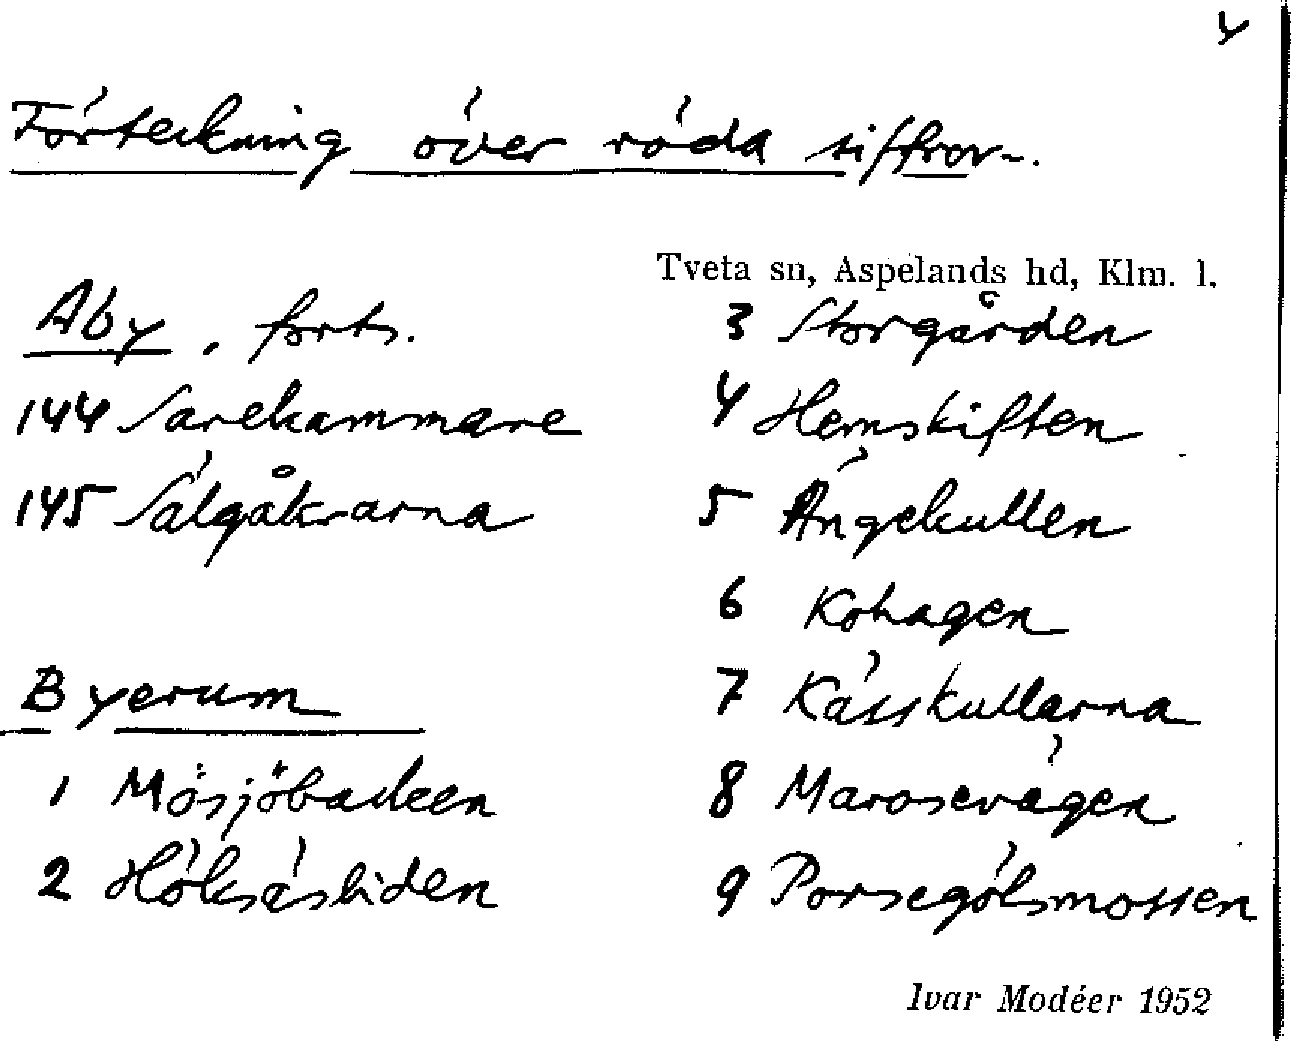 4
Förteckning över röda siffror.
Tveta sn, Aspelands hd, Klm. l.
Åby, forts.
144 Sarekammare
145 Sälgåkrarna
Byerum
1 Mösjöbacken
2 Höksäsliden
3 Storgården
4 Hemskiften
5 Ängekullen
6 Kohagen
7 Kässkullarna
8 Marosevägen
9 Porsegölsmossen
Ivar Modéer 1952